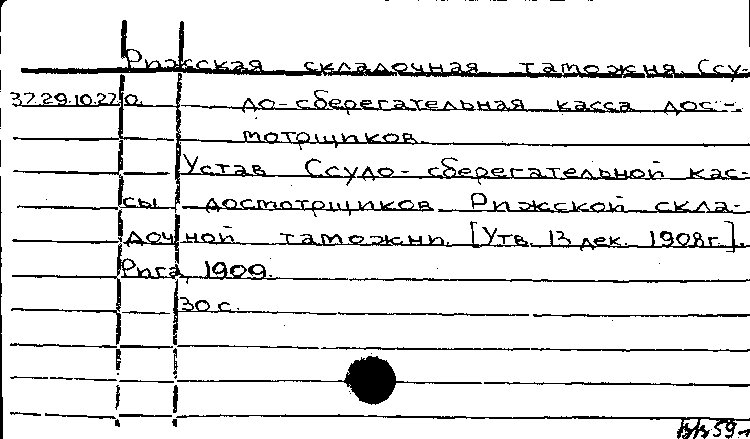 Рижская складочная таможня. Ссу-
37.29.10.22 о. до-сберегательная касса дос-
мотрщиков.
Устав Ссудо-сберегательной кас-
сы досмотрщиков Рижской скла-
дочной таможни. [Утв. 13 дек. 1908г.].
Рига, 1909.
30 с.